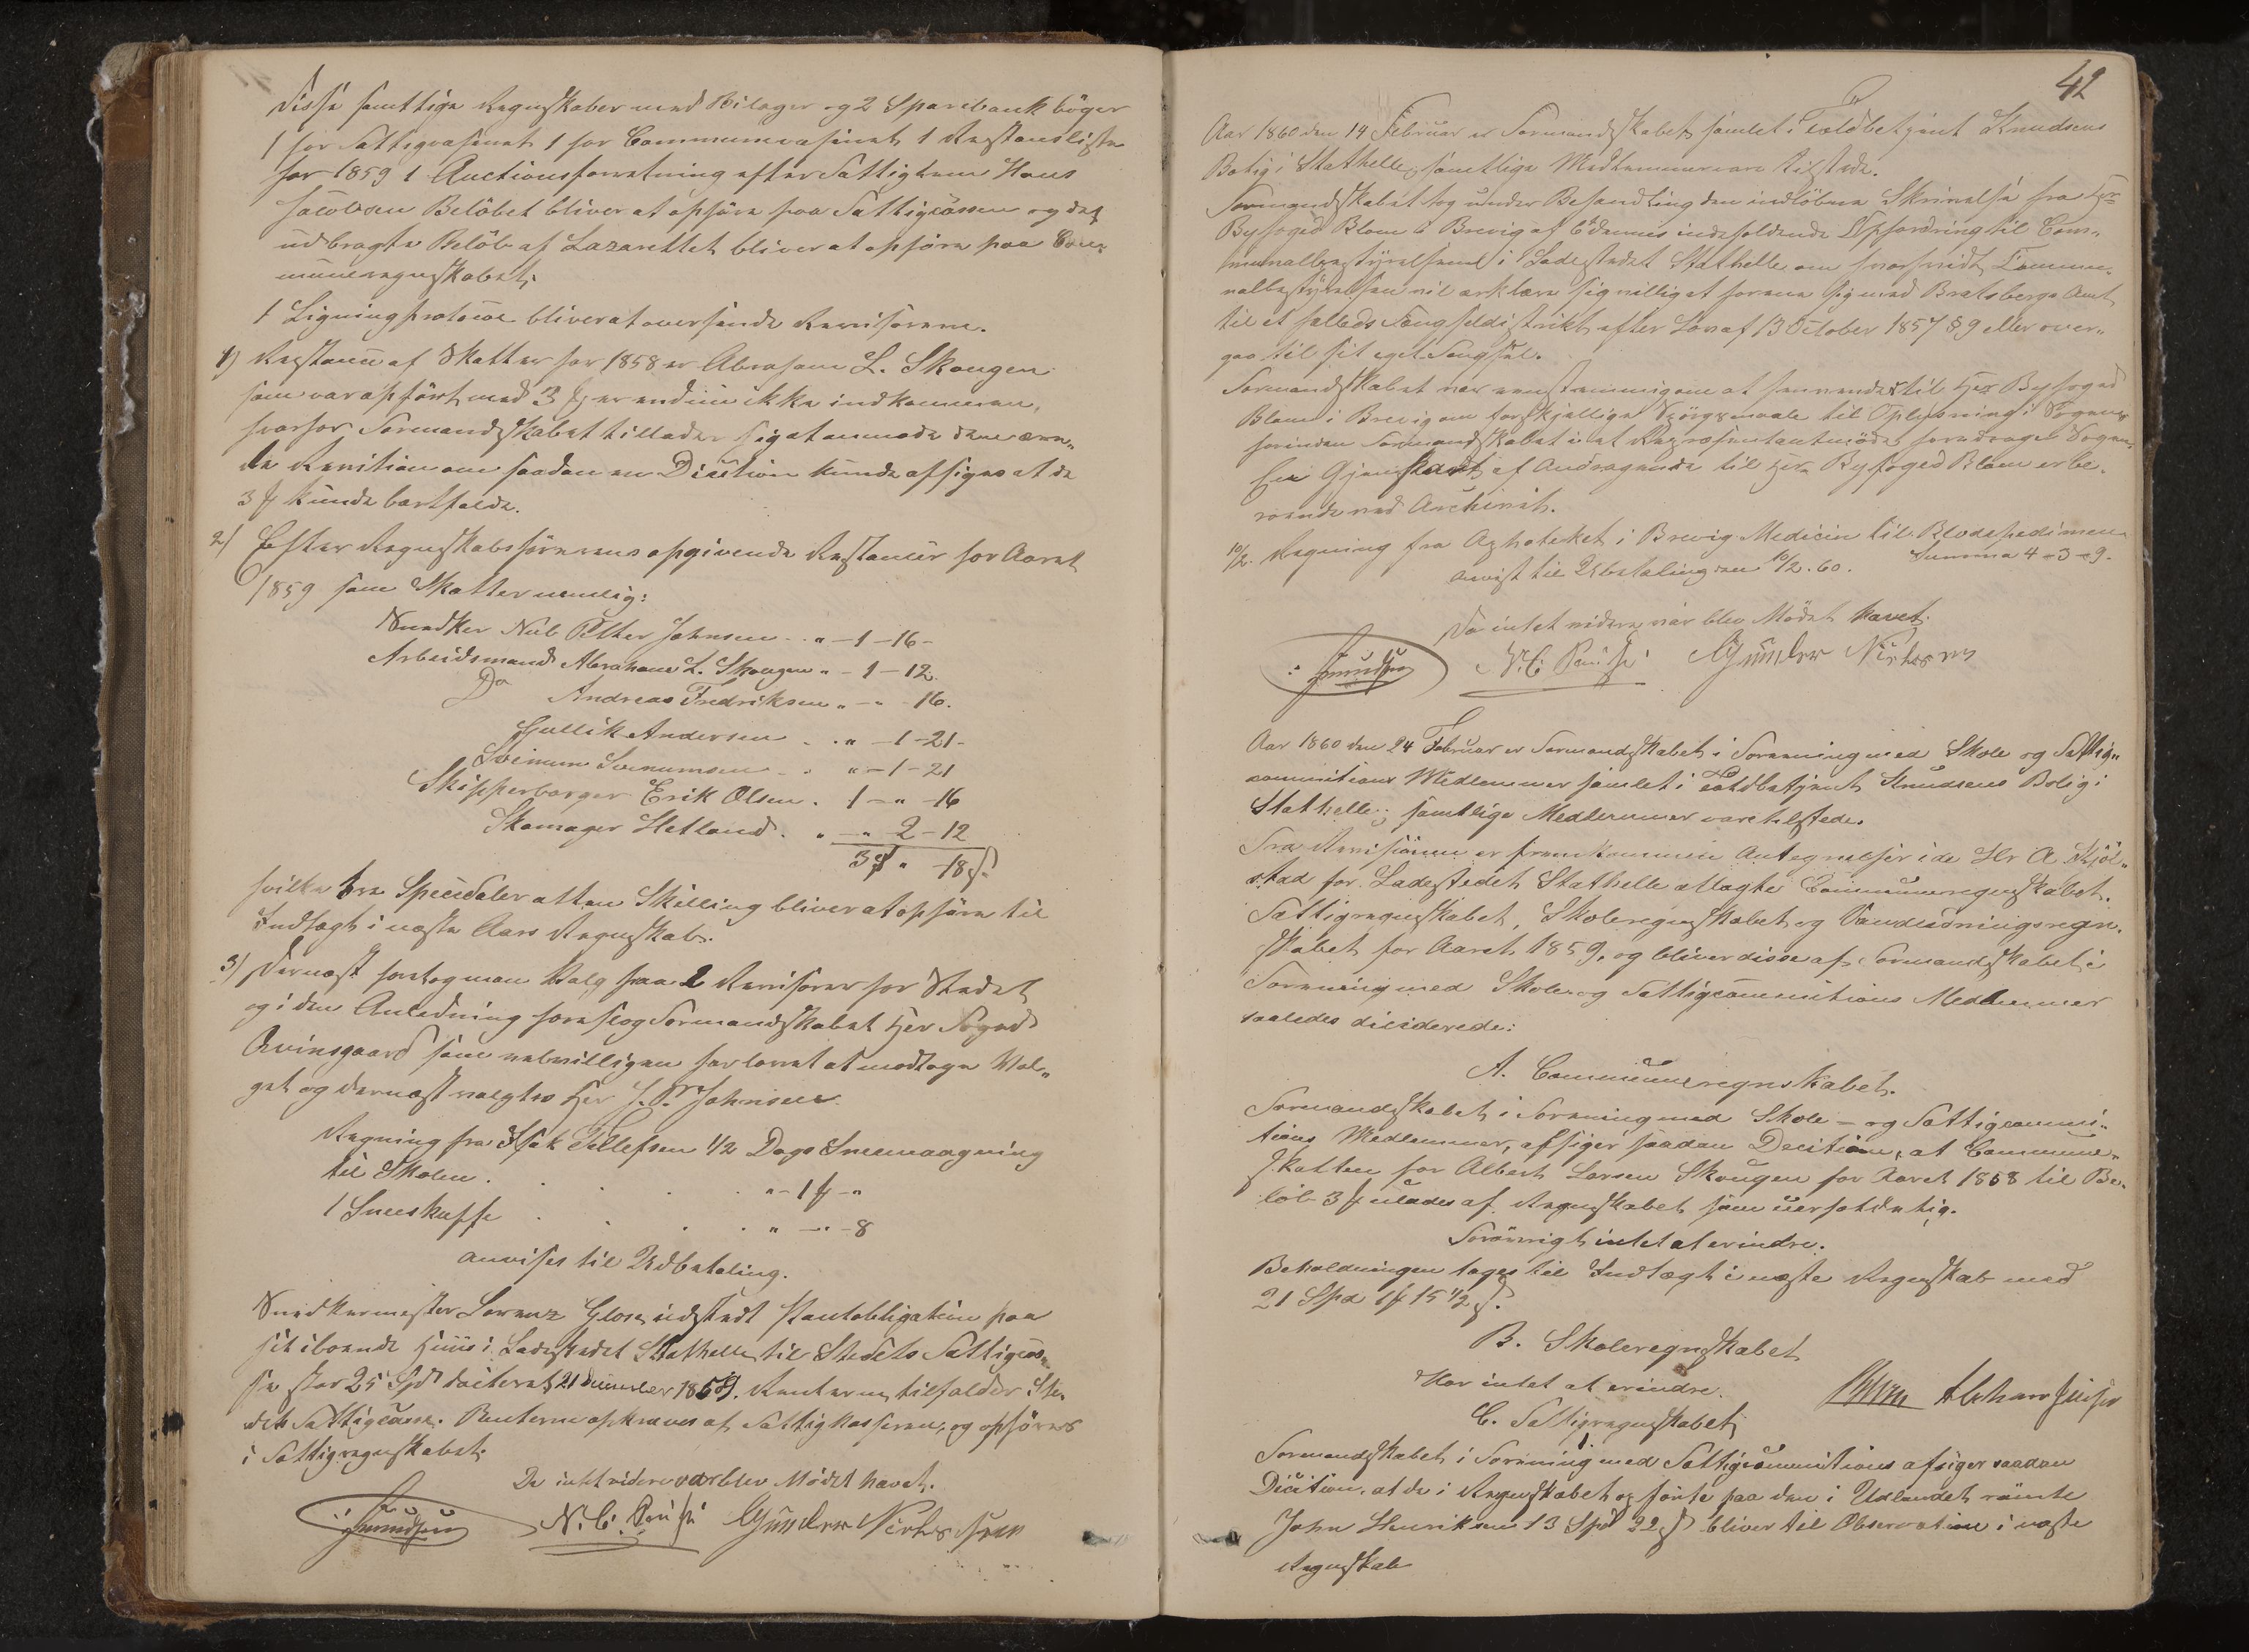 Disse samtlige Regnskaber med Bilager og 2 Sparebank bøger
1 for Fattigvæsenet 1 for Communevæsenet 1 Restanceliste
for 1859 1 Auctionsforretning efter Fattiglem Hans
Jacobsen Beløbet bliver at opføre paa Fattigcassen og det
udbragte Beløb af Lazarettet bliver at opføre paa Com-
muneregnskabet,
1 Ligningsprotocol bliver at oversende Revisorerne.
1) Restance af Skatter for 1858 er Abraham L. Skougen
som var opført med 3 ℔ er endnu ikke indkommen,
hvorfor Formandskabet tillader sig at anmode den ære-
de Revision om saadan en Decition kunde afsiges at de
3 ℔ kunde bortfalde.
2) Efter Regnskabsførerens opgivende Restancer for Aaret
1859 som Skatter nemlig:
Snedker Niels Petter Johnsen - " - 1 - 16 -
Arbeidsmand Abraham L. Skougen " - 1 - 12.
Do Andreas Fredriksen " - " - 16.
Gullik Andersen . . " - 1 - 21 -
Svinum Svinumsen - . " - 1 - 21
Skipperborger Erik Olsen . 1 - " - 16
Skomager Hetland . " - " 2 - 12
3 " - 18 s.
hvilke tre Speciedaler atten Skilling bliver at opføre til
Indtægt i næste Aars Regnskab.
3) Dernæst foretog man Valg paa 2 Revisorer for Stedet
og i den Anledning foreslog Formandskabet Her Foged
Qvinsgaard som velvilligen har lovet at modtage Val-
get og dernæst valgtes Her J. P. Johnsen
Regning fra Isak Tellefsen 1/2 Dags Sneemaagning
til Skolen . . . . " - 1 ℔ - "
1 Sneeskuffe . . . . " - " - 8
anvises til Udbetaling.
Snedkermester Lorenz Glose udstædt Pantobligation paa
sit iboende Huus i Ladestedet Stathelle til Stedets Fattigcas-
se stor 25 Spd dateret 21 December 1859. Renterne tilfalder Ste-
dets Fattigcasse. Renterne opkræves af Fattigkasseren, og opføres
i Fattigregnskabet.
Da intet videre var blev Mødet hævet.
Knudsen N. C. Gunder Nirisen
42
Aar 1860 den 14 Februar er Formandskabet samlet i Toldbetjent Knudsens
Bolig i Stathelle, samtlige Medlemmer vare tilstede.
Formandskabet tog under Behandling den indløbne Skrivelse fra Hr
Byfoged Blom i Brevig af 6te dennes indeholdende Opfordring til Com-
munalbestyrelsen i Ladestedet Stathelle om hvorvidt Commu-
nalbestyrelsen vil erklære sig villig at forene sig med Bratsbergs Amt
til et fælleds Fængseldistrikt efter Lov af 13 October 1857 § 9 eller over-
gaa til sit eget Fængsel.
Formandskabet var eenstemmigen at henvende til Her Byfoged
Blom i Brevig om forskjellige Spørgsmaale til Oplysning i Sagen
forinden Formandskabet i et Repræsentantmøde foredrager Sagen,
En Gjenpart af Andragende til Her Byfoged Blom er be-
roende ved Archivet.
10/2. Regning fra Apotheket i Brevig Medicin til Blodepedimien
Summa 4 - 3 - 9.
anvist til Udbetaling den 10/2. 60.
Da intet videre var blev Mødet hævet.
Knudsen N. C. Gunder Nirisen
Aar 1860 den 24 Februar er Formandskabet i Forening med Skole og Fattig-
commitions Medlemmer samlet i Toldbetjent Knudsens Bolig i
Stathelle; samtlige Medlemmer vare tilstede.
Fra Revisionen er fremkommen Antegnelser i de Hr A. Kjøl-
stad for Ladestedet Stathelle aflagte Communeregnskabet.
Fattigregnskabet, Skoleregnskabet og Vandledningsregn-
skabet for Aaret 1859, og bliver disse af Formandskabet i
Forening med Skole- og Fattigcommitions Medlemmer
saaledes deciderede:
A. Communeregnskabet.
Formandskabet i Forening med Skole - og Fattigcommi-
tions Medlemmer, afsiger saadan Decition, at Commune-
skatten for Albert Larsen Skougen for Aaret 1858 til Be-
løb 3 ℔ udlades af Regnskabet som uerholdelig.
Forøvrigt intet at erindre.
Beholdningen tages til Indtægt i næste Regnskab med
21 Spd 1 ℔ 15 1/2 s.
B. Skoleregnskabet
Har intet at erindre.
C. Fattigregnskabet,
Formandskabet i Forening med Fattigcommitions afsiger saadan
Decition, at de i Regnskabet opførte paa den i Udlandet rømte
John Henriksen 13 Spd 22 s bliver til Observation i næste
Regnskab